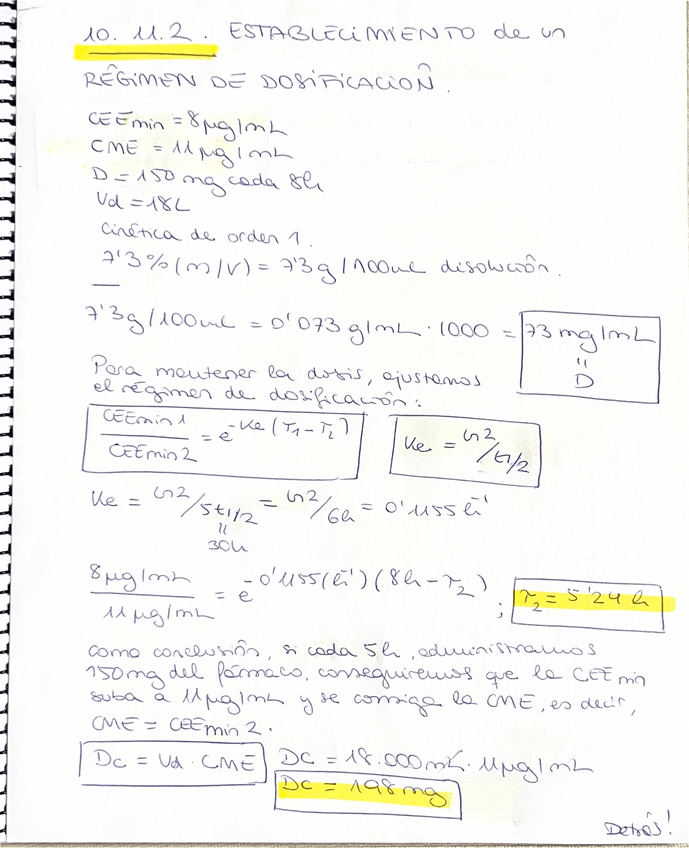 10.11.2. ESTABLECIMIENTO de un
RÉGIMEN DE DOSIFICACIÓN.
CEEmin = 8 µg/mL
CME = 11 µg/mL
D = 150 mg cada 8h
Vd = 18L
Cinética de orden 1.
7'3% (m/V) = 7'3 g/100 mL disolución.
7'3g/100mL = 0'073 g/mL · 1000 = 73 mg/mL
"
D
Para mantener la dosis, ajustamos
el régimen de dosificación:
CEEmin1 / CEEmin2 = e^-Ke (τ1 - τ2)    Ke = Ln2/t1/2
Ke = Ln2/5t1/2 = Ln2/6h = 0'1155 h⁻¹
"
30h
8µg/mL / 11µg/mL = e^-0'1155(h⁻¹)(8h - τ2) ; τ2 = 5'24 h
Como conclusión, si cada 5h, administramos
150mg del fármaco, conseguiremos que la CEEmin
suba a 11µg/mL y se consiga la CME, es decir,
CME = CEEmin2.
Dc = Vd · CME    Dc = 18.000mL · 11µg/mL
Dc = 198mg
Detrás!